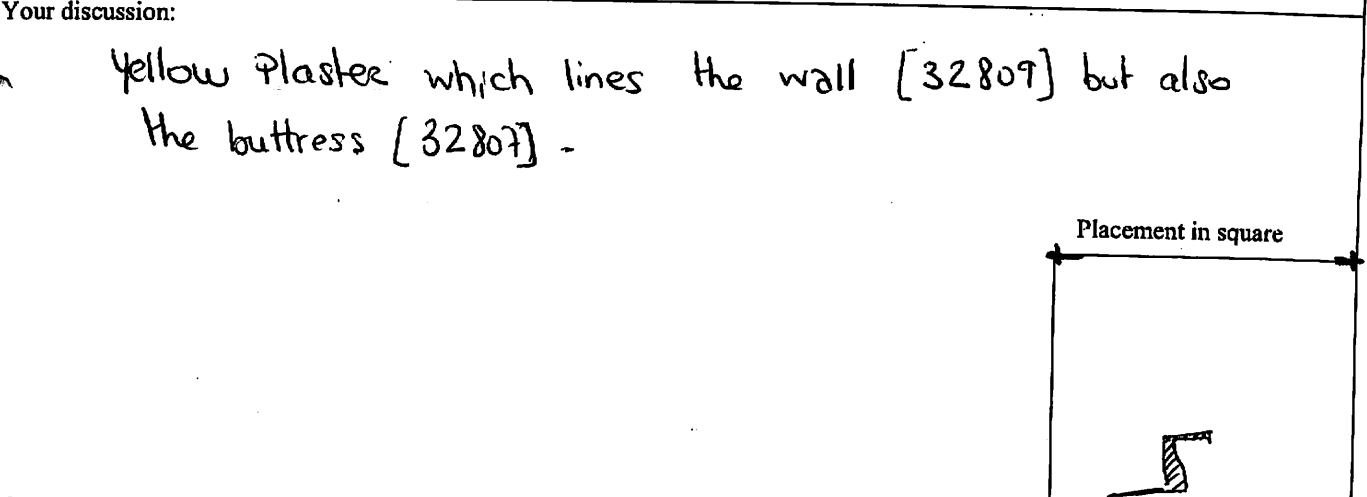 Your discussion:
Yellow Plaster which lines the wall [32809] but also
the buttress [32807] -
Placement in square